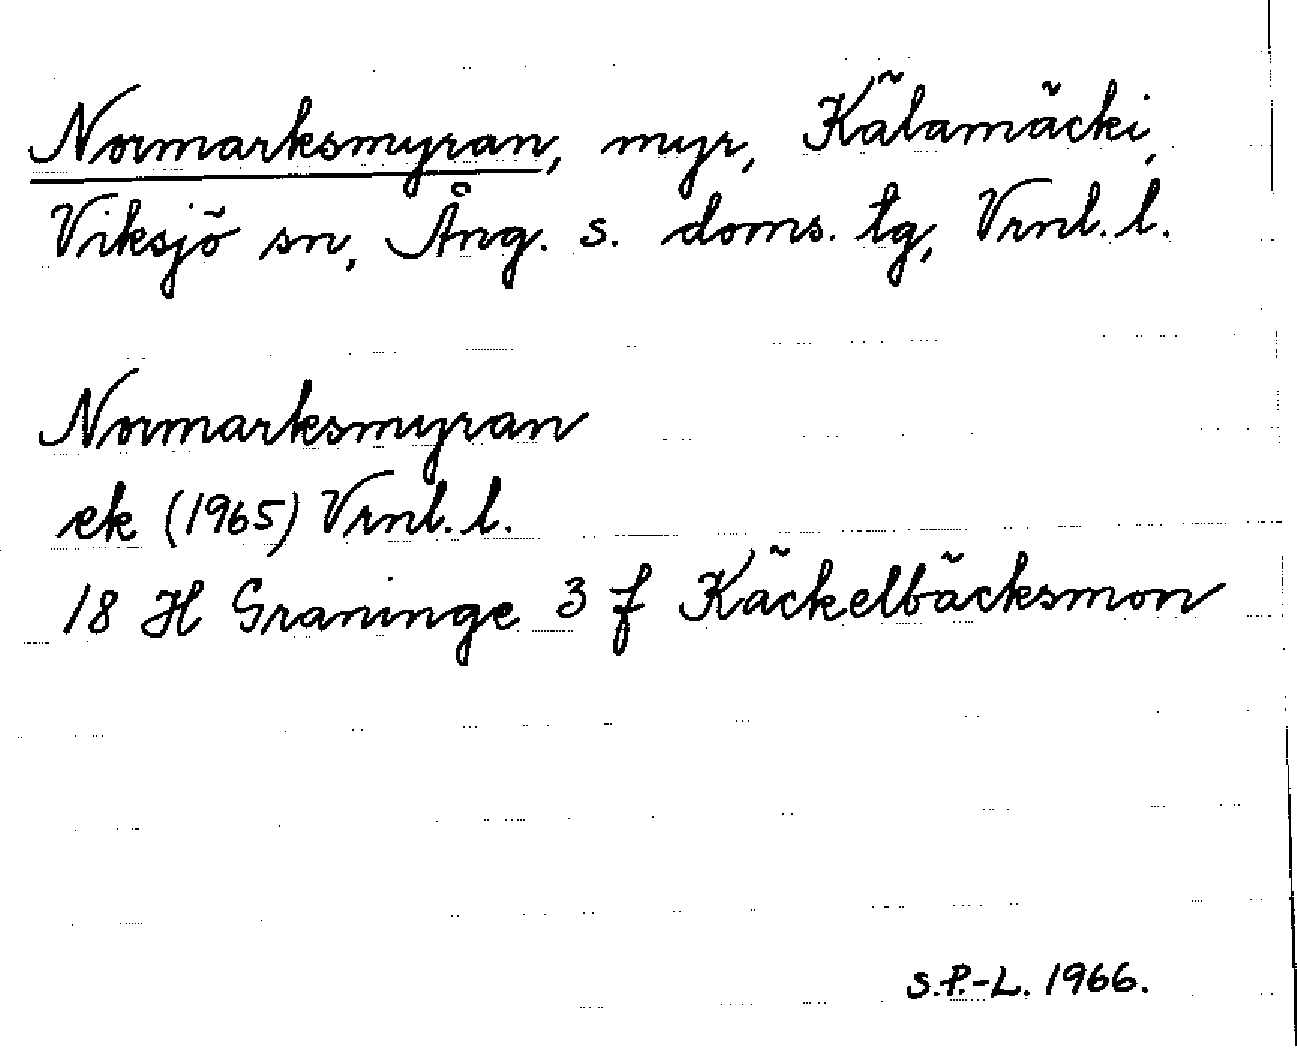 Normarksmyran, myr, Kälamäcki,
Viksjö sn, Ång. s. doms. tg, Vrnl. l.
Normarksmyran
ek (1965) Vrnl. l.
18 H Graninge 3 f Käckelbäcksmon
S.P.-L. 1966.